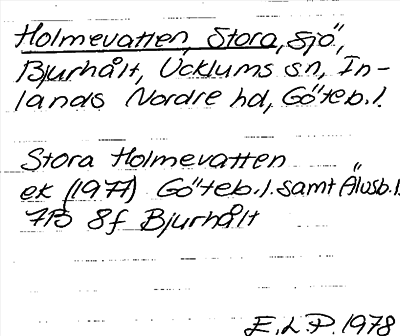 Holmevatten, Stora, sjö,
Bjurhålt, Ucklums sn, In-
lands Nordre hd, Göteb.l.
Stora Holmevatten
ek (1977) Göteb.l. samt Älvsb.l.
7B 8f Bjurhålt
E.L.P. 1978